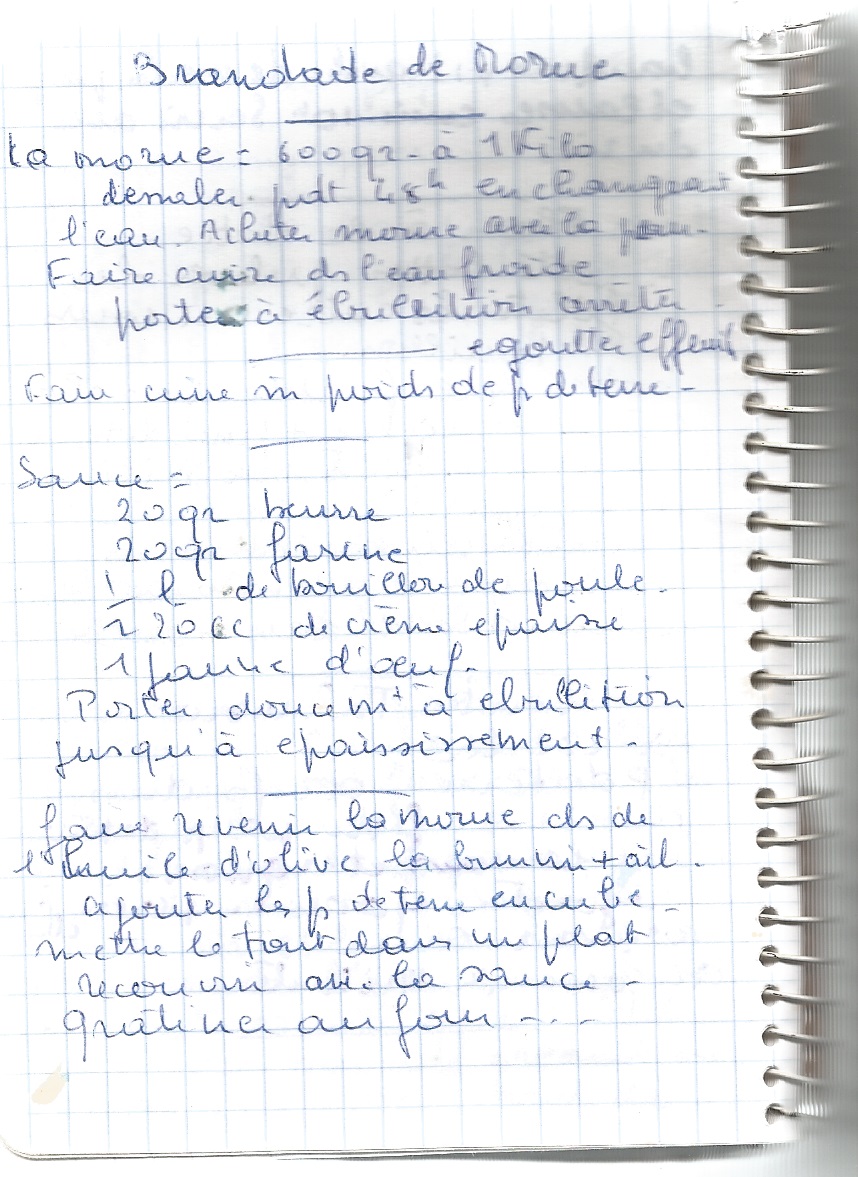 Brandade de Morue
La morue = 600gr. à 1 Kilo
dessaler pdt 48h en changeant
l'eau. Acheter morue avec la peau.
Faire cuire ds l'eau froide
porter à ébullition arrêter.
egoutter effeuil
Faire cuire m poids de p de terre -
Sauce =
20 gr beurre
20 gr farine
1/2 l de bouillon de poule.
20 cc de crème epaisse
1 jaune d'œuf.
Porter doucemt à ebullition
jusqu'à epaississement.
faire revenir la morue ds de
l'huile d'olive la brunir + ail.
ajouter les p de terre en cube -
mettre le tout dans un plat
recouvrir avec la sauce -
Gratiner au four - - -